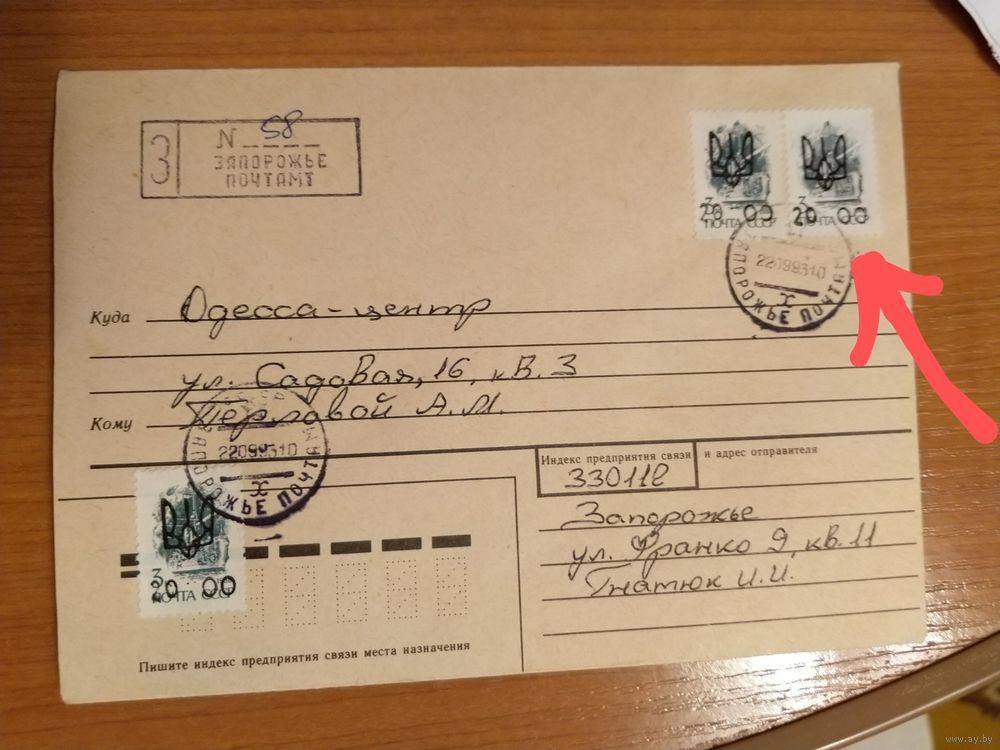 З
N 58
ЗАПОРОЖЬЕ
ПОЧТАМТ
3
20 00
ПОЧТА СССР
3
20 00
ПОЧТА СССР
22099310
ЗАПОРОЖЬЕ ПОЧТАМТ
Х
Куда Одесса-центр
ул. Садовая, 16, кв. 3
Кому Перловой А.М.
22099310
ЗАПОРОЖЬЕ ПОЧТАМТ
Х
3
20 00
ПОЧТА СССР
Индекс предприятия связи и адрес отправителя
330118
Запорожье
ул. Франко 9, кв. 11
Гнатюк И.И.
Пишите индекс предприятия связи места назначения
www.ay.by